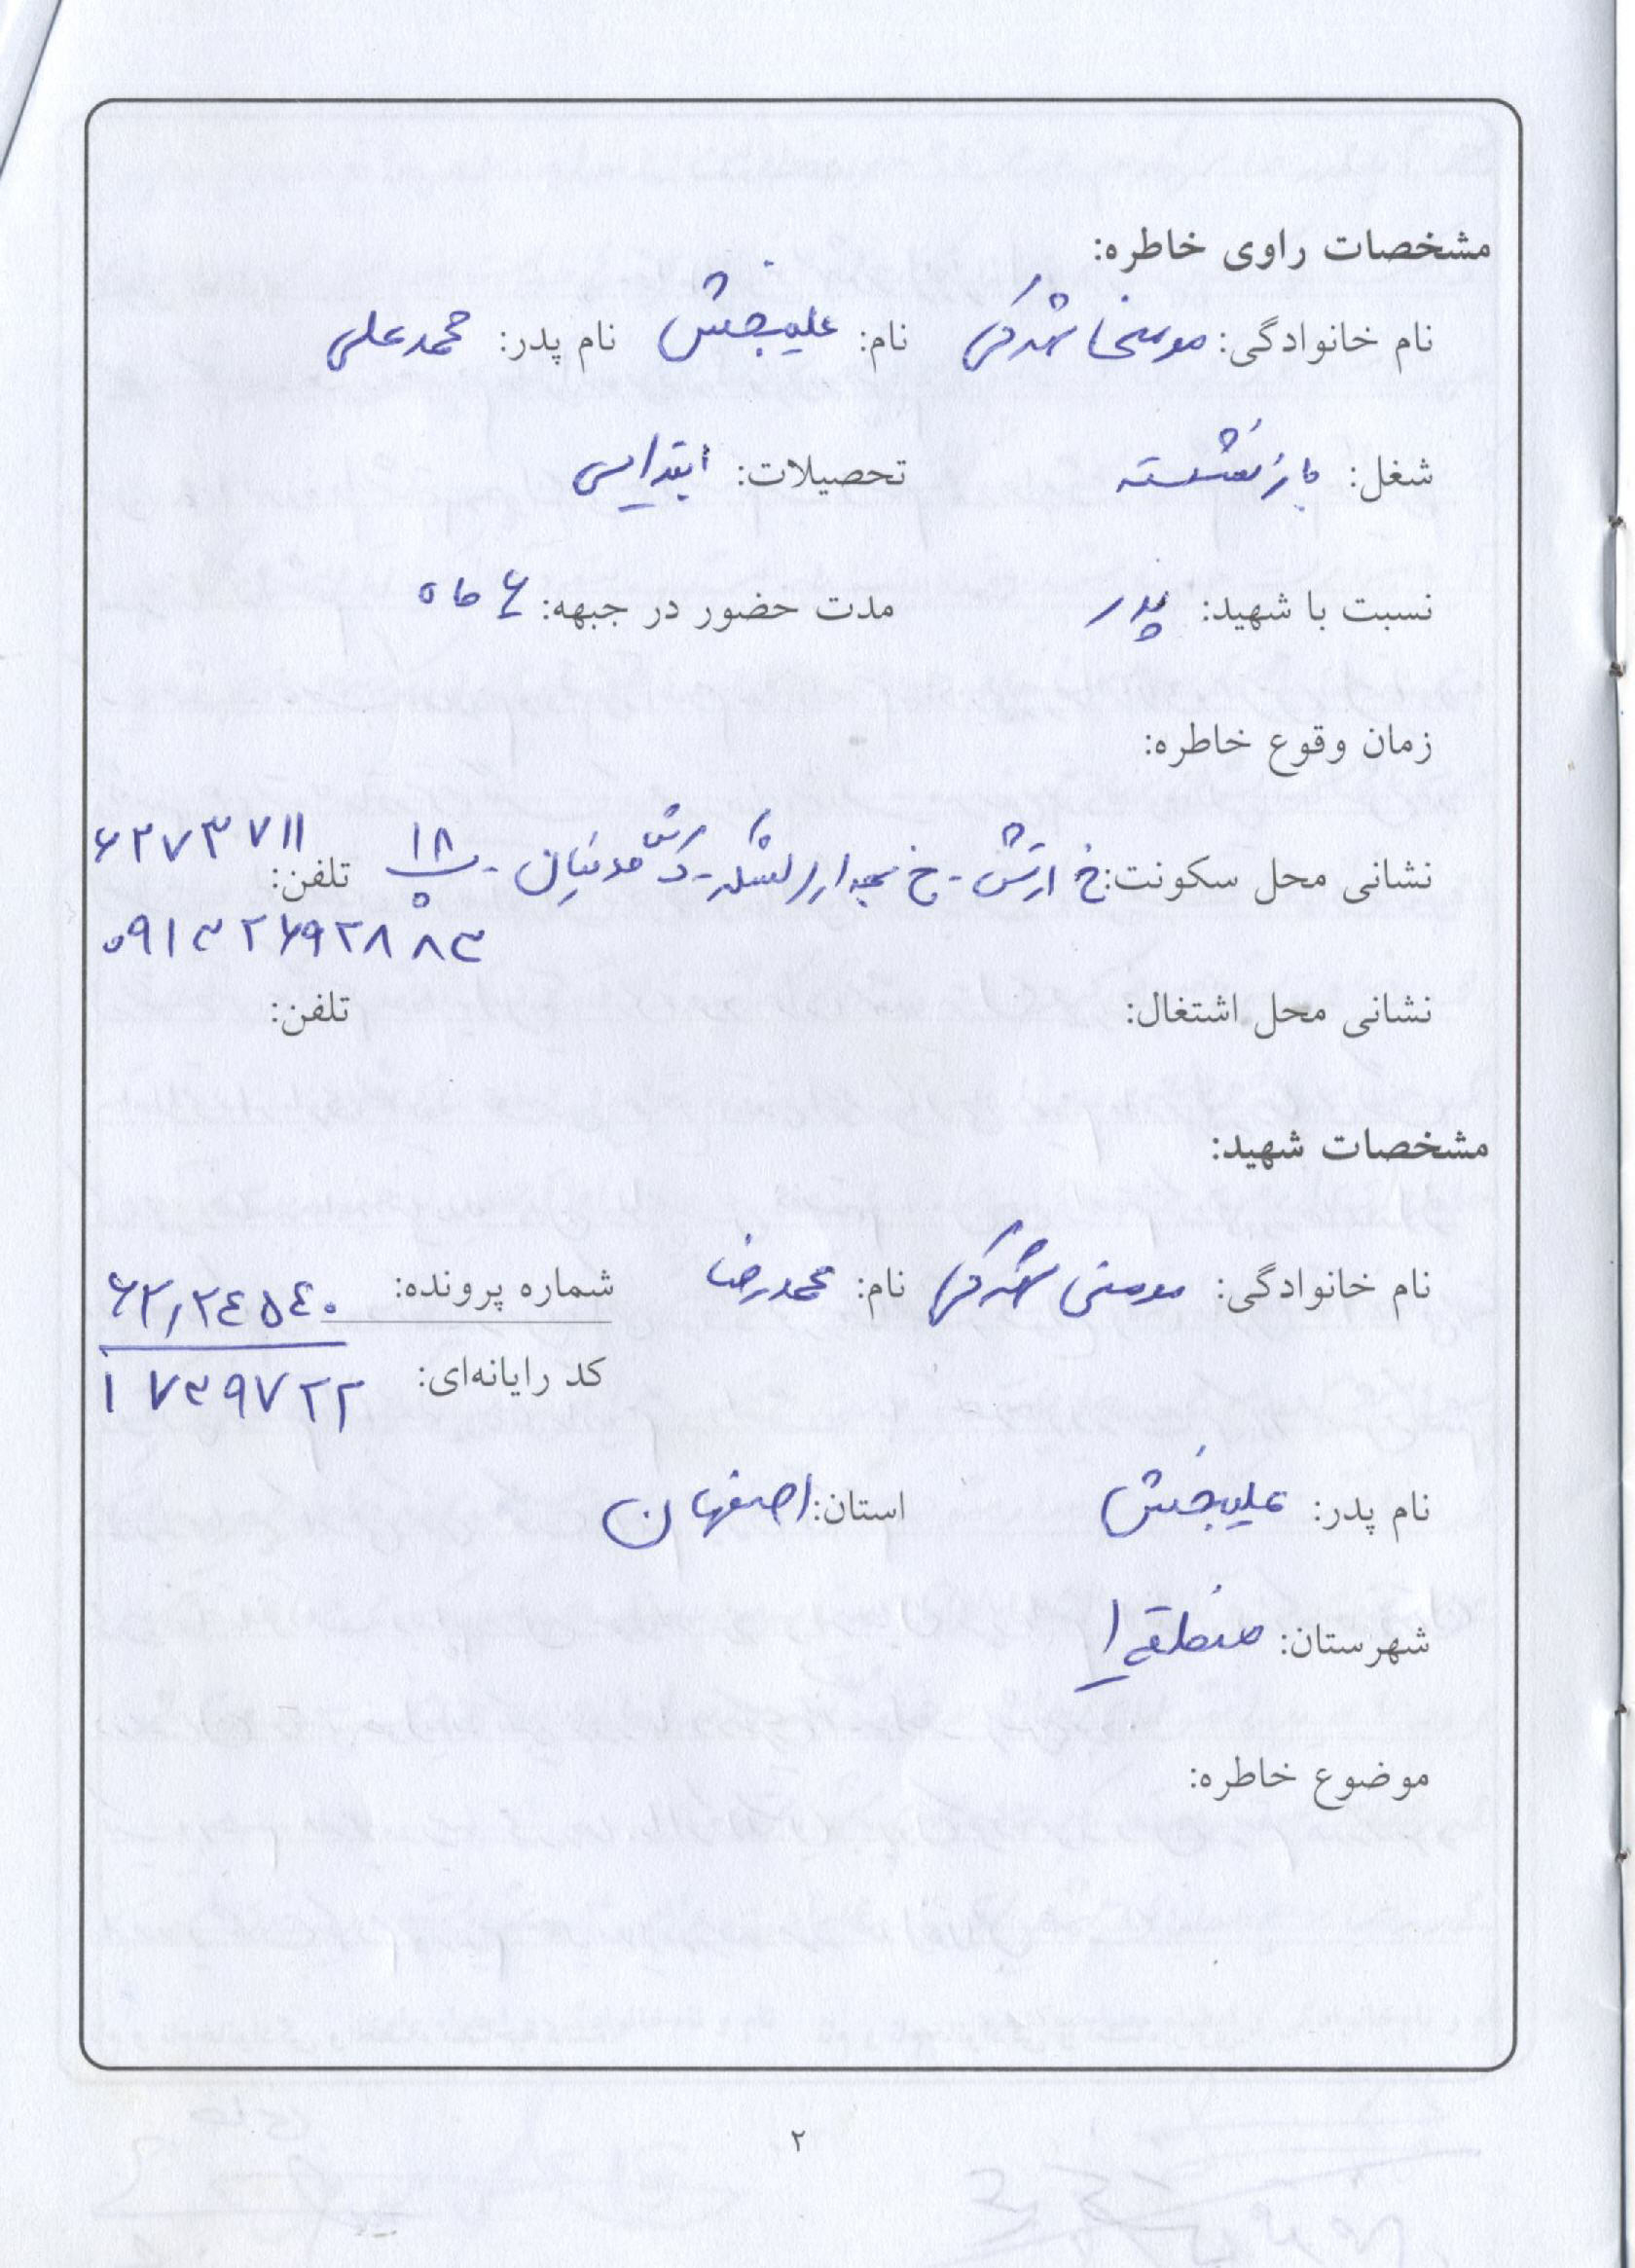 مشخصات راوی خاطره:
نام خانوادگی: مومنی شهرکی نام: علیبخش نام پدر: محمدعلی
شغل: بازنشسته تحصیلات: ابتدایی
نسبت با شهید: پدر مدت حضور در جبهه: ۶ ماه
زمان وقوع خاطره:
نشانی محل سکونت: خ ارتش - خ - ۱۸ تلفن: ۶۲۷۳۷۱۱
۰۹۱۳۲۶۹۲۸۸۳
نشانی محل اشتغال: تلفن:
مشخصات شهید:
نام خانوادگی: مومنی شهرکی نام: محمدرضا شماره پرونده: ۶۲٫۲۴۵۴۰
کد رایانه‌ای: ۱۷۳۹۷۲۲
نام پدر: علیبخش استان: اصفهان
شهرستان: منطقه ۱
موضوع خاطره:
۲